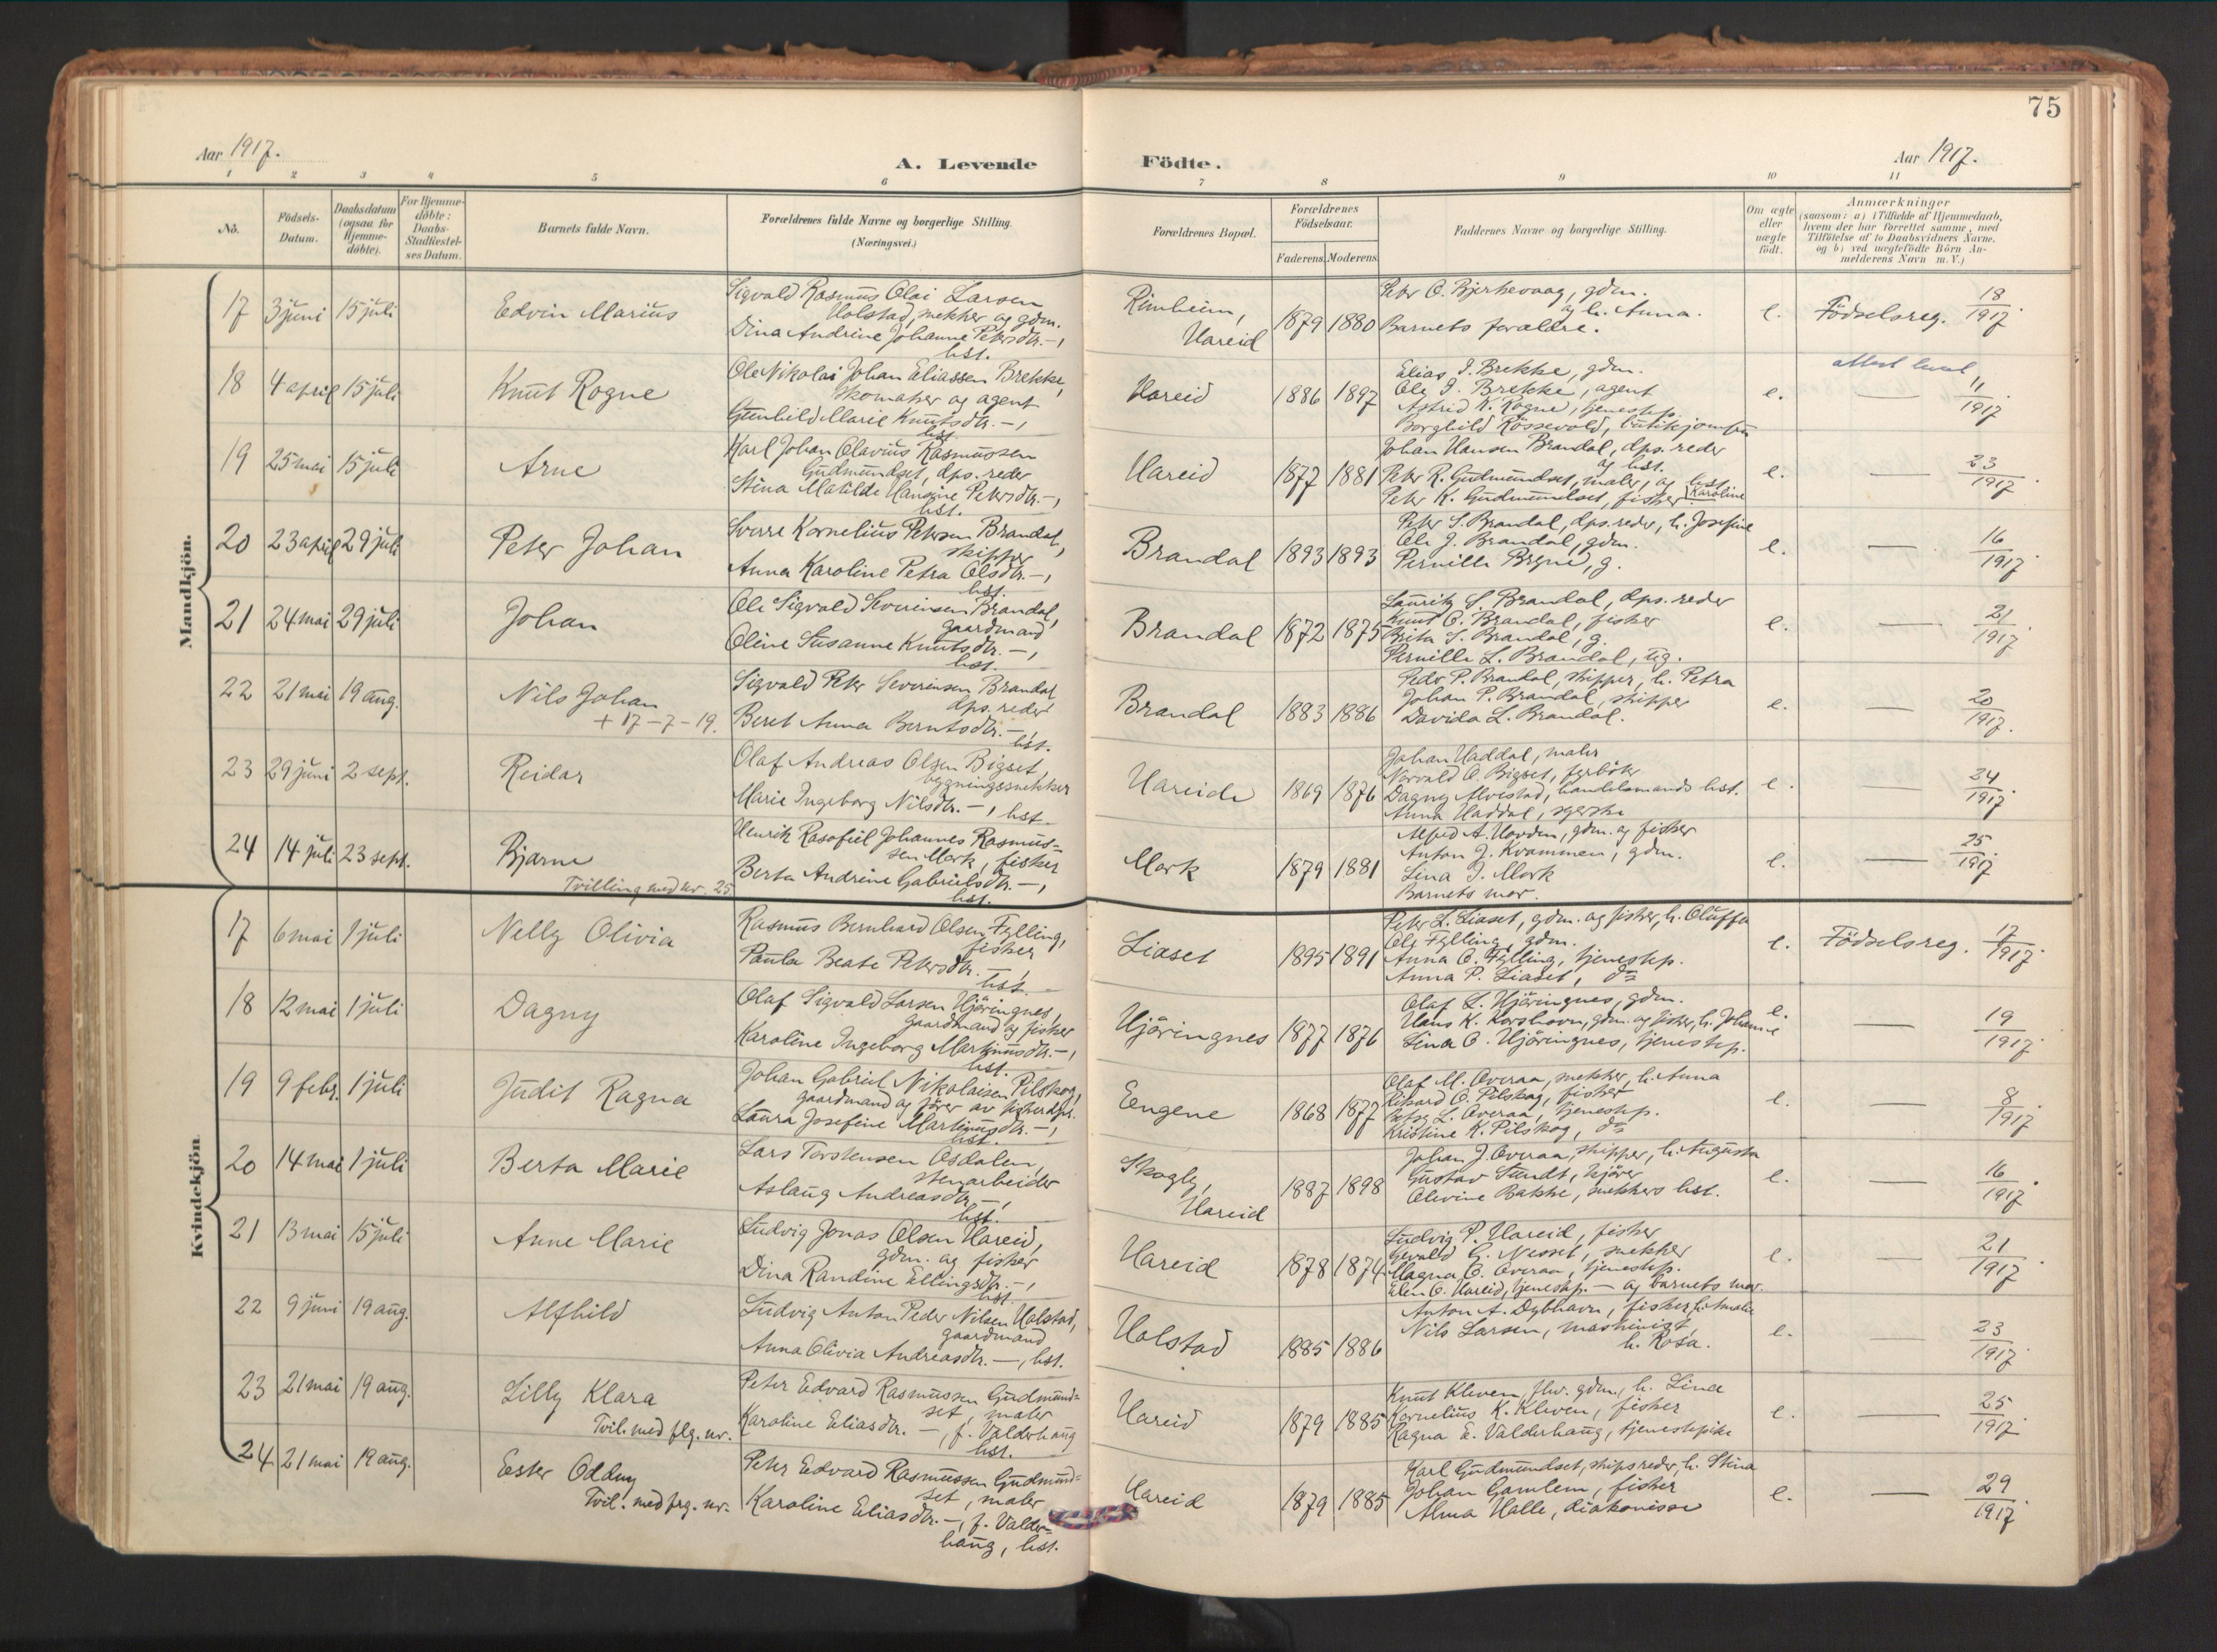 75
Aar 1917.
A. Levende Födte.
Aar 1917.
1 2 3 4 5 6 7 8 9 10 11
No.
Födsels-
Datum.
Daabsdatum
(ogsaa for
Hjemme-
döbte).
For Hjemme-
döbte:
Daabs-
Stadfæstel-
ses Datum.
Barnets fulde Navn.
Forældrenes fulde Navne og borgerlige Stilling.
(Næringsvei.)
Forældrenes Bopæl.
Forældrenes
Födselsaar.
Faderens. Moderens.
Faddernes Navne og borgerlige Stilling.
Om ægte
eller
uægte
födt.
Anmærkninger
(saasom: a) i Tilfælde af Hjemmedaab,
hvem der har forrettet samme, med
Tilföielse af to Daabsvidners Navne.
og b) ved uægtefödte Börn An-
melderens Navn m. V.)
Mandkjön.
17 3 juni 15 juli Edvin Marius
Sigvald Rasmus Olai Larsen
Holstad, snekker og gdm.
Dina Andrine Johanne Petersdtr. —,
hst.
Rimheim,
Hareid
1879 1880
Peter O. Bjerkevaag, gdm.
og h. Anna.
Barnets forældre.
e. Födselsreg. 18/1917.
18 4 april 15 juli Knut Rogne
Ole Nikolai Johan Eliassen Brekke,
skomaker og agent
Gunhild Marie Knutsdtr. —,
hst.
Hareid 1886 1897
Elias J. Brekke, gdm.
Ole J. Brekke, agent
Astrid K. Rogne, tjenestep.
Borghild Rossevold, butikjomfru
e. — 11/1917.
19 25 mai 15 juli Arne
Karl Johan Olavius Rasmussen
Gudmundset, dps. reder
Stina Matilde Hansine Petersdtr. —,
hst.
Hareid 1877 1881
Johan Hansen Brandal, dps. reder
og hst.
Peter R. Gudmundset, maler, og hst.
Karoline
Peter K. Gudmundset, fisker
e. — 23/1917.
20 23 april 29 juli Peter Johan
Sverre Kornelius Petersen Brandal,
skipper
Anna Karoline Petra Olsdtr. —,
hst.
Brandal 1893 1893
Peter S. Brandal, dps. reder, h. Josefine
Ole J. Brandal, gdm.
Pernille Brejne, g.
e. — 16/1917.
21 24 mai 29 juli Johan
Ole Sigvald Severinsen Brandal,
gaardmand
Oline Susanne Knutsdtr. —,
hst.
Brandal 1872 1875
Lauritz S. Brandal, dps. reder
Knut O. Brandal, fisker
Brita S. Brandal, g.
Pernille L. Brandal, ug.
e. — 21/1917.
22 21 mai 19 aug. Nils Johan
+ 17-7-19.
Sigvald Peter Severinsen Brandal
dps. reder
Beret Anna Berntsdtr. —,
hst.
Brandal 1883 1886
Peder P. Brandal, skipper, h. Petra
Johan P. Brandal, skipper
Davida L. Brandal.
e. — 20/1917.
23 29 juni 2 sept. Reidar
Olaf Andreas Olsen Bigset,
bygningssnekker
Marie Ingeborg Nilsdtr. —, hst.
Hareide 1869 1876
Johan Haddal, maler
Norvald O. Bigset, fyrböter
Dagny Alvestad, handelsmands hst.
Anna Haddal, syerske
e. — 24/1917.
24 14 juli 23 sept. Bjarne
Tvilling med nr. 25
Henrik Rasafiel Johannes Rasmus=
sen Mork, fisker
Berta Andrine Gabrielsdtr. —,
hst.
Mork 1879 1881
Alfred A. Hovden, gdm. og fisker
Anton J. Kvammen, gdm.
Lina J. Mork
Barnets mor.
e. — 25/1917.
Kvindekjön.
17 6 mai 1 juli Nelly Olivia
Rasmus Bernhard Olsen Fylling,
fisker
Paula Beate Petersdtr. —,
hst. —
Liaset 1895 1891
Peter L. Liaset, gdm. og fisker, h. Oluffa
Ole Fylling, gdm.
Anna O. Fylling, tjenestep.
Anna P. Liaset, do
e. Födselsreg. 17/1917.
18 12 mai 1 juli Dagny
Olaf Sigvald Larsen Hjöringnes,
gaardmand og fisker
Karoline Ingeborg Martinusdtr. —,
hst.
Hjöringnes 1877 1876
Olaf L. Hjöringnes, gdm.
Hans K. Korshavn, gdm. og fisker, h. Johanne
Lina O. Hjöringnes, tjenestep.
e. — 19/1917.
19 9 febr. 1 juli Judit Ragna
Johan Gabriel Nikolaisen Pilskog,
gaardmand og förer av fiskerdpsk.
Laura Josefine Martinusdtr. —,
hst.
Eugene 1868 1877
Olaf M. Overaa, snekker, h. Anna
Rikard O. Pilskog, fisker
Betsy L. Overaa, tjenestep.
Kristine K. Pilskog, do
e. — 8/1917.
20 14 mai 1 juli Berta Marie
Lars Torstensen Osdalen,
stenarbeider
Aslaug Andreasdtr. —,
hst.
Skogly,
Hareid
1887 1898
Johan J. Overaa, skipper, h. Augusta
Gustav Sundt, kjörer
Olivine Bakke, snekkers hst.
e. — 16/1917.
21 13 mai 15 juli Anne Marie
Ludvig Jonas Olsen Hareid,
gdm. og fisker
Dina Randine Ellingsdtr. —,
hst.
Hareid 1878 1874
Ludvig P. Hareid, fisker
Sevald G. Nesset, snekker
Magna O. Overaa, tjenestep.
Elen O. Hareid, tjenestep. — og barnets mor.
e. — 21/1917.
22 9 juni 19 aug. Alfhild
Ludvig Anton Peder Nilsen Holstad,
gaardmand
Anna Olivia Andreasdtr. —, hst.
Holstad 1885 1886
Anton A. Dybhavn, fisker, h. Amalie
Nils Larsen, maskinist,
h. Rosa.
e. — 23/1917.
23 21 mai 19 aug. Lilly Klara
Tvil. med flg. nr.
Peter Edvard Rasmussen Gudmund=
set, maler
Karoline Eliasdtr. —, f. Valderhaug
hst.
Hareid 1879 1885
Knut Kleven, fhv. gdm., h. Lina
Kornelius K. Kleven, fisker
Ragna E. Valderhaug, tjenestepike
e. — 25/1917.
24 21 mai 19 aug. Ester Oddny
Tvil. med frg. nr.
Peter Edvard Rasmussen Gudmund=
set, maler
Karoline Eliasdtr. —, f. Valder=
haug, hst.
Hareid 1879 1885
Karl Gudmundset, skipsreder, h. Stina
Johan Gamlem, fisker
Alma Halle, diakonisse
e. — 29/1917.